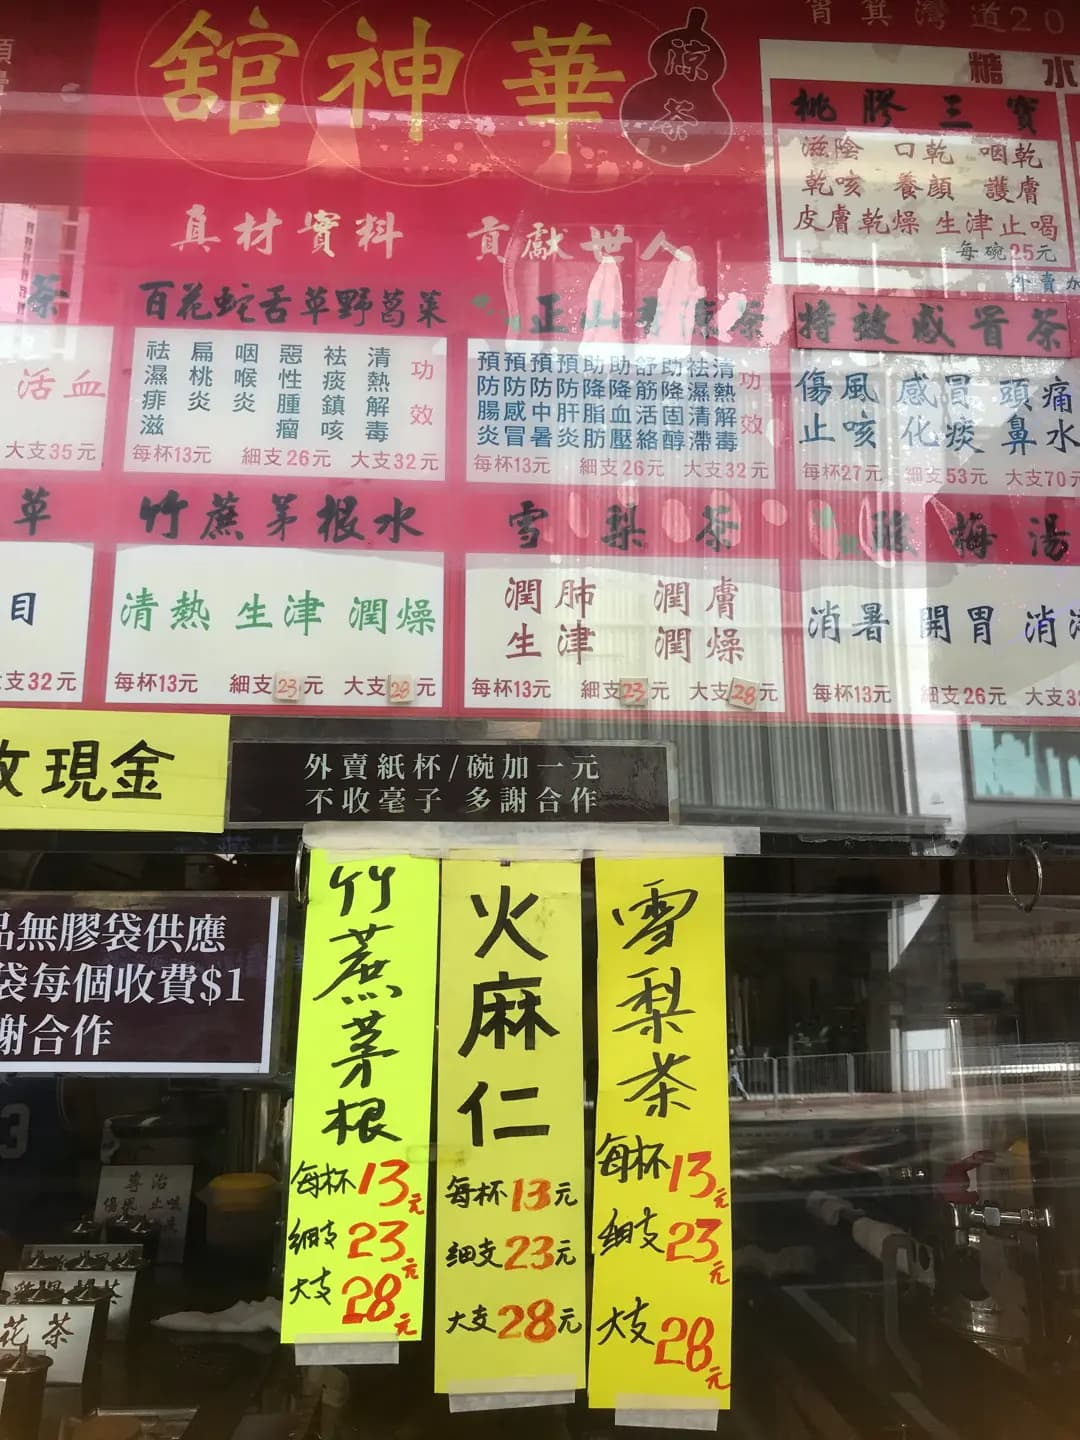 舘神華
涼茶
筲箕灣道20
真材實料 貢獻世人
糖水
桃膠三寶
滋陰 口乾 咽乾
乾咳 養顏 護膚
皮膚乾燥 生津止喝
每碗25元
外賣加
茶
活血
大支35元
百花蛇舌草野葛菜
功效
清熱解毒
祛痰鎮咳
惡性腫瘤
咽喉炎
扁桃炎
祛濕痱滋
每杯13元 細支26元 大支32元
功效
清熱解毒
祛濕清滯
助降固醇
舒筋活絡
助降血壓
助降脂肪
預防肝炎
預防中暑
預防感冒
預防腸炎
每杯13元 細支26元 大支32元
特效感冒茶
傷風 感冒 頭痛
止咳 化痰 鼻水
每杯27元 細支53元 大支70元
草
目
支32元
竹蔗茅根水
清熱 生津 潤燥
每杯13元 細支23元 大支28元
雪梨茶
潤肺 潤膚
生津 潤燥
每杯13元 細支23元 大支28元
酸梅湯
消暑 開胃 消
每杯13元 細支26元 大支3
收現金
外賣紙杯/碗加一元
不收毫子 多謝合作
品無膠袋供應
袋每個收費$1
謝合作
竹蔗茅根
每杯13元
細支23元
大支28元
火麻仁
每杯13元
細支23元
大支28元
雪梨茶
每杯13元
細支23元
大支28元
專治
花茶